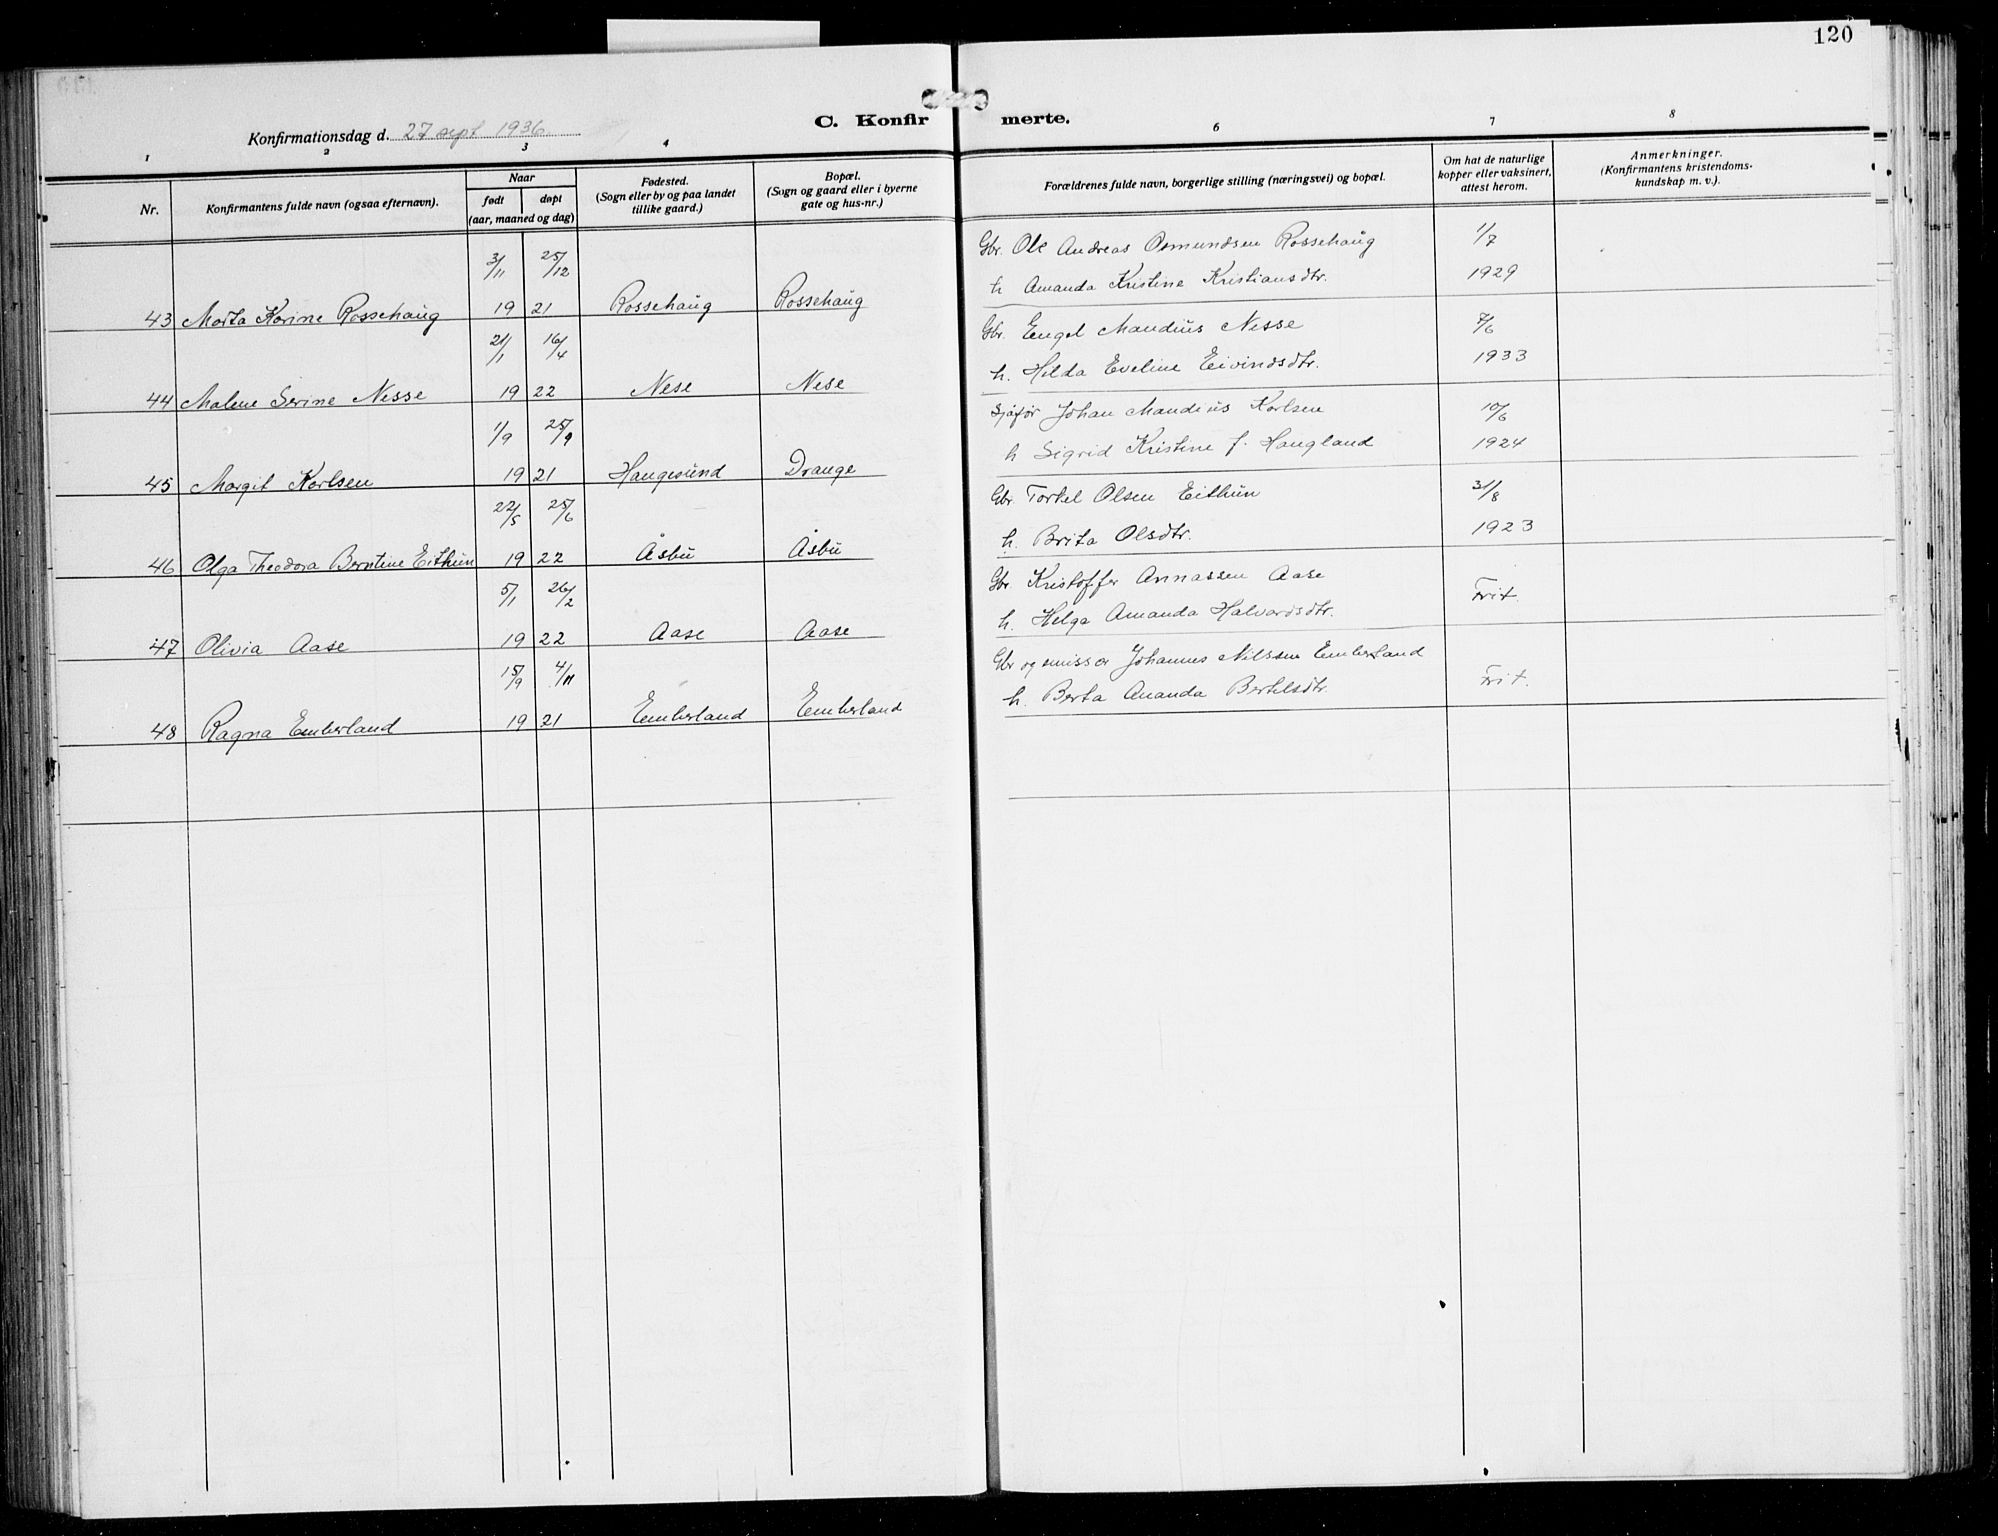 120
Konfirmationsdag d. 27 sept 1936.
C. Konfirmerte.
1 2 3 4 6 7 8
Nr.
Konfirmantens fulde navn (ogsaa efternavn).
Naar
født døpt
(aar, maaned og dag)
Fødested.
(Sogn eller by og paa landet
tillike gaard.)
Bopæl.
(Sogn og gaard eller i byerne
gate og hus-nr.)
Forældrenes fulde navn, borgerlige stilling (næringsvei) og bopæl.
Om hat de naturlige
kopper eller vaksinert,
attest herom.
Anmerkninger.
(Konfirmantens kristendoms-
kundskap m. v.).
3/11 25/12 Gbr. Ole Andreas Osmundsen Rossehaug 1/7
h Amanda Kristine Kristiansdtr. 1929
43 Marta Karine Rossehaug 19 21 Rossehaug Rossehaug
21/1 16/4 Gbr. Engel Mandius Nesse 7/6
h. Hilda Eveline Eivindsdtr. 1933
44 Malene Serine Nesse 19 22 Nese Nese
1/9 25/9 Sjåfør Johan Mandius Karlsen 10/6
h Sigrid Kristine f. Haugland 1924
45 Margit Karlsen 19 21 Haugesund Drange
22/5 25/6 Gbr Torkel Olsen Eithun 31/8
h. Brita Olsdtr. 1923
46 Olga Theodora Berntine Eithun 19 22 Åsbu Åsbu
5/1 26/2 Gbr. Kristoffer Annassen Aase Frit.
h. Helga Amanda Halvardsdtr.
47 Olivia Aase 19 22 Aase Aase
15/9 4/11 Gbr og Johannes Nilssen Emberland Frit.
h. Berta Ananda Bertelsdtr.
48 Ragna Emberland 19 21 Emberland Emberland